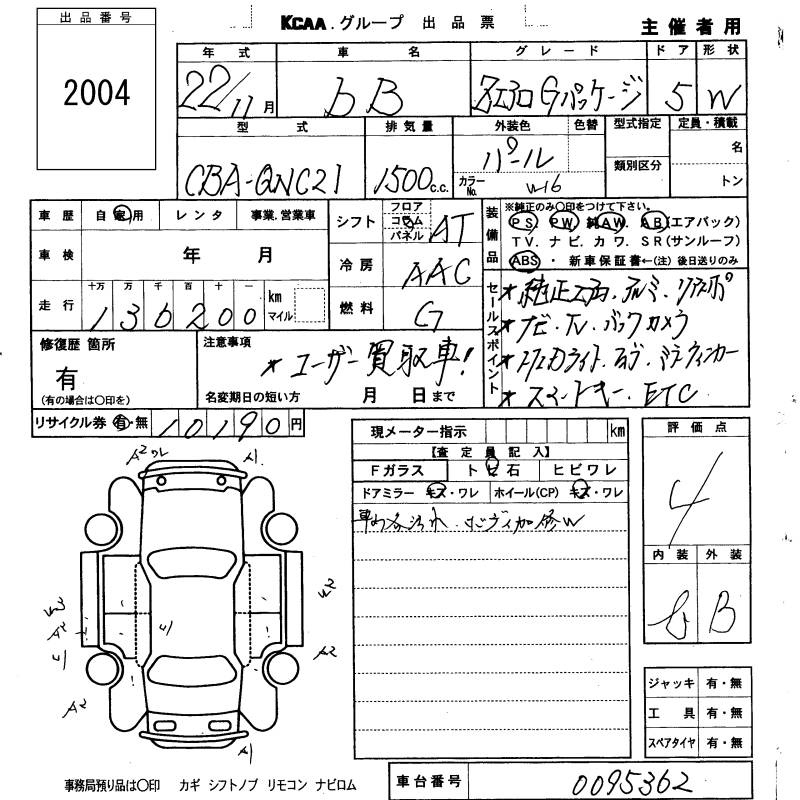 出品番号
KCAA.グループ 出品票
主催者用
2004
年式 車名 グレード ドア 形状
22/11月 bB エアロGパッケージ 5 W
型式 排気量 外装色 色替 型式指定 定員・積載
CBA-QNC21 1500c.c. パール
カラーNo. W16
類別区分
名
トン
車歴 自家用 レンタ 事業.営業車
車検 年 月
走行 十万 万 千 百 十 一
130200 km マイル
シフト フロア コラム パネル AT
冷房 AAC
燃料 G
装備品
※純正のみ〇印をつけて下さい。
PS. PW. 純AW. AB(エアバック)
TV. ナビ. カワ. SR(サンルーフ)
ABS ・ 新車保証書←(注)後日送りのみ
セールスポイント
★純正エアロ.アルミ.リアスポ
★ナビ.TV.バックカメラ
★ウィンカー
★スマートキー.ETC
修復歴 箇所
有
(有の場合は〇印を)
注意事項
★ユーザー買取車!
名変期日の短い方 月 日まで
リサイクル券 有・無 10190円
現メーター指示 km
【査定員記入】
Fガラス トビ石 ヒビワレ
ドアミラー キズ・ワレ ホイール(CP) キズ・ワレ
評価点
4
内装 外装
B
A2 ワレ A1
W3
A2
W2
A2
A2
A1
ジャッキ 有・無
工具 有・無
スペアタイヤ 有・無
事務局預り品は〇印 カギ シフトノブ リモコン ナビロム
車台番号 0095362